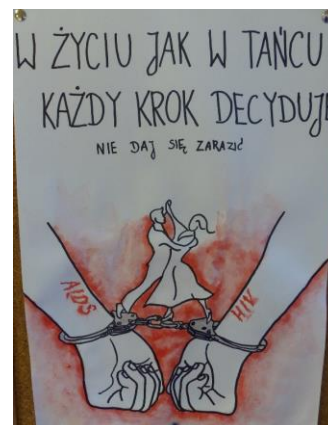 W ŻYCIU JAK W TAŃCU
KAŻDY KROK DECYDUJE
NIE DAJ SIĘ ZARAZIĆ
AIDS
HIV